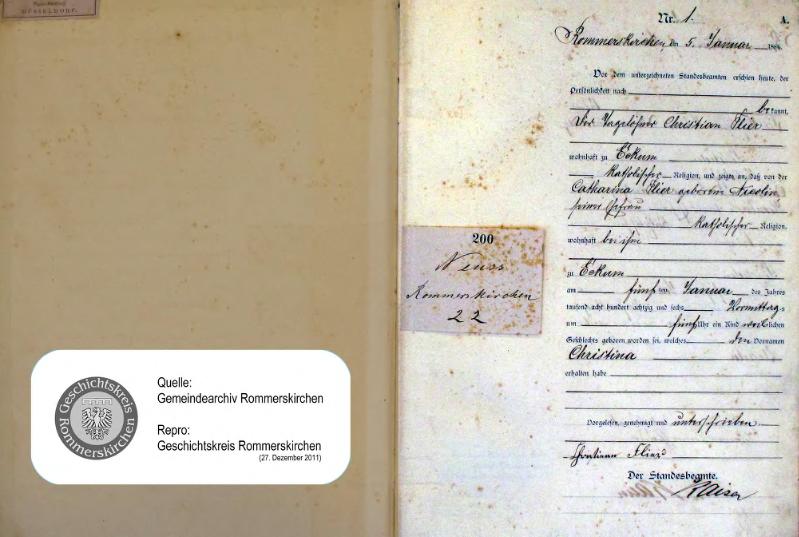 DÜSSELDORF.
Geschichtskreis
Rommerskirchen
Quelle:
Gemeindearchiv Rommerskirchen
Repro:
Geschichtskreis Rommerskirchen
(27. Dezember 2011)
200
Neuss
Rommerskirchen
22
Nr. 1.
A.
Rommerskirchen, den 5. Januar
Vor dem unterzeichneten Standesbeamten erschien heute, der
Persönlichkeit nach
bekannt,
Der Tagelöhner Christian Flier
wohnhaft zu Eckum
katholischer Religion, und zeigte an, daß von der
Catharina Flier geborene
seiner Ehefrau
katholischer Religion,
wohnhaft bei ihm
zu Eckum
am fünften Januar des Jahres
tausend acht hundert achtzig und sechs Vormittags
um fünf Uhr ein Kind weiblichen
Geschlechts geboren worden sei, welches den Vornamen
Christina
erhalten habe
Vorgelesen, genehmigt und unterschrieben
Der Standesbeamte.
Kaiser